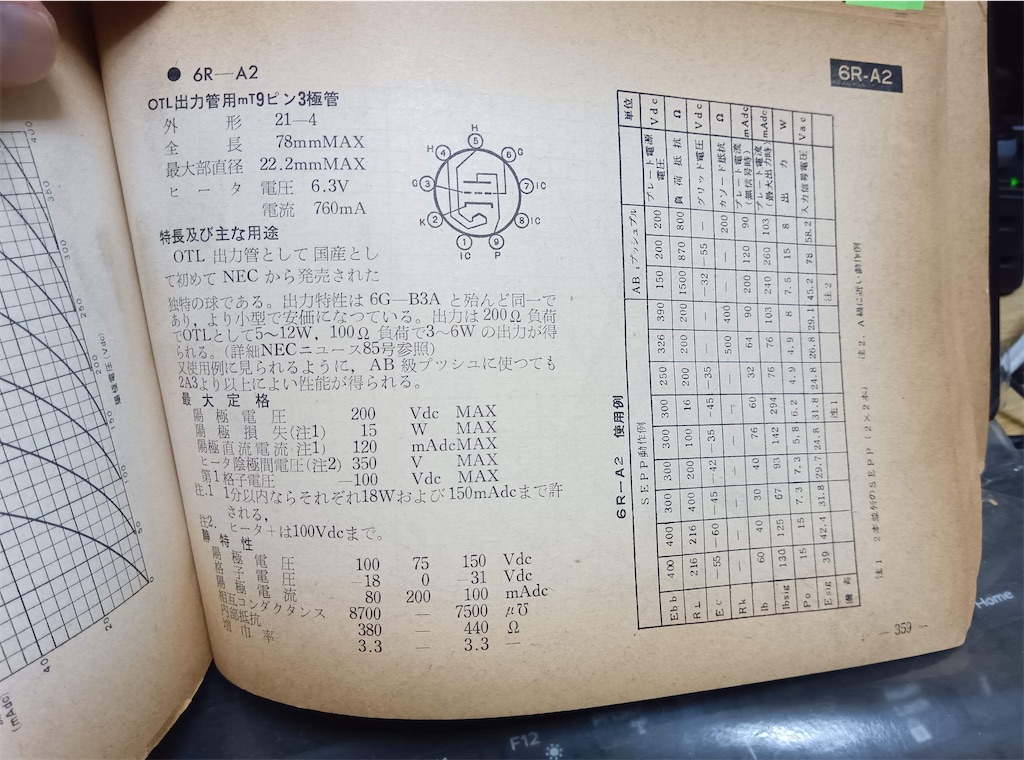 ● 6R—A2
6R-A2
OTL出力管用mT9ピン3極管
外形 21—4
全長 78mmMAX
最大部直径 22.2mmMAX
ヒータ 電圧 6.3V
電流 760mA
H
H 4 5 6 G
G 3 7 IC
K 2 8 IC
1 9
IC P
特長及び主な用途
OTL 出力管として国産とし
て初めて NEC から発売された
独特の球である。出力特性は 6G—B3A と殆んど同一で
あり，より小型で安価になつている。出力は 200Ω 負荷
でOTLとして5〜12W，100Ω 負荷で3〜6W の出力が得
られる。（詳細NECニュース85号参照）
又使用例に見られるように，AB 級プッシュに使つても
2A3より以上によい性能が得られる。
最大定格
陽極電圧 200 Vdc MAX
陽極損失(注1) 15 W MAX
陽極直流電流(注1) 120 mAdcMAX
ヒータ陰極間電圧(注2) 350 V MAX
第1格子電圧 —100 Vdc MAX
注.1 1分以内ならそれぞれ18Wおよび150mAdcまで許
される，
注2. ヒータ+は100Vdcまで。
静特性
陽極電圧 100 75 150 Vdc
格子電圧 —18 0 —31 Vdc
陽極電流 80 200 100 mAdc
相互コンダクタンス 8700 — 7500 μ℧
内部抵抗 380 — 440 Ω
増巾率 3.3 — 3.3 —
6R—A2 使用例
SEPP動作例 AB₁プッシュプル 単位
Ebb 400 400 300 300 300 300 250 326 390 150 200 200 プレート電源電圧 Vdc
RL 216 216 400 200 100 16 200 200 200 1500 870 800 負荷抵抗 Ω
Ec —55 —60 —45 —42 —35 —45 —35 — — —32 —55 — グリッド電圧 Vdc
Rk — — — — — — — 500 400 — — 200 カソード抵抗 Ω
Ib 60 40 30 40 76 60 32 64 90 200 120 90 プレート電流(無信号時) mAdc
Ibsig 130 125 67 93 142 294 76 76 103 240 260 103 プレート電流(最大出力時) mAdc
Po 15 15 7.3 7.3 5.8 6.2 4.9 4.9 8 7.5 15 8 出力 W
Esig 39 42.4 31.8 29.7 24.8 31.8 24.8 26.8 29.1 45.2 78 58.2 入力信号電圧 Vac
備考 注1 注2
注1 2本並列のSEPP（2×2本） 注2．A級に近い動作例
— 359 —
400
350
300
200
100
50
0
20
40
(mAdc)
Home
F12